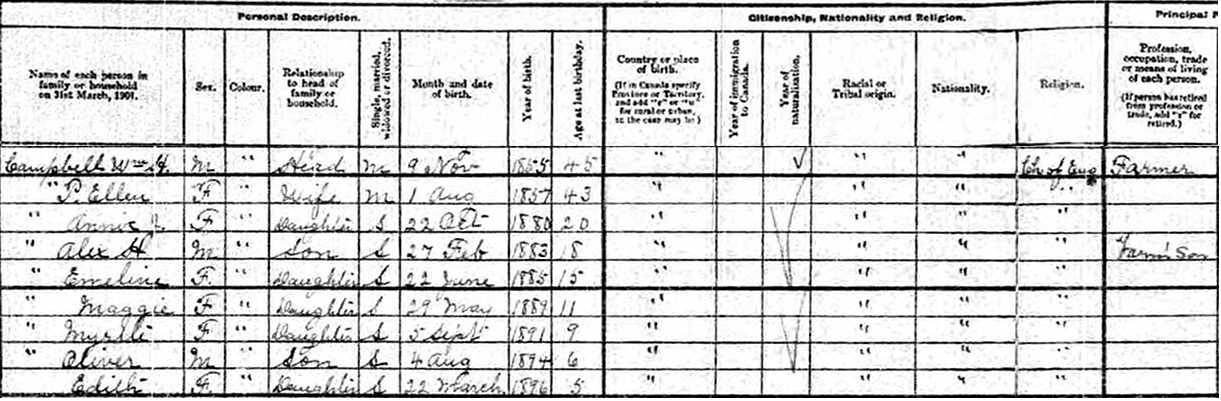 Personal Description. Citizenship, Nationality and Religion. Principal P
Name of each person in family or household on 31st March, 1901. Sex. Colour. Relationship to head of family or household. Single, married, widowed or divorced. Month and date of birth. Year of birth. Age at last birthday. Country or place of birth. (If in Canada specify Province or Territory, and add "r" or "u" for rural or urban, as the case may be.) Year of immigration to Canada. Year of naturalization. Racial or Tribal origin. Nationality. Religion. Profession, occupation, trade or means of living of each person. (If person has retired from profession or trade, add "r" for retired.)
Campbell Wm H. M " Head M 9 Nov 1855 45 " ✓ " " Ch of Eng Farmer
" P. Ellen F " Wife M 1 Aug 1857 43 " " " "
" Annie F " Daughter S 22 Oct 1880 20 " " " "
" Alex H M " Son S 27 Feb 1883 18 " " " " Farm's Son
" Emeline F. " Daughter S 22 June 1885 15 " " " "
" Maggie F " Daughter S 29 May 1889 11 " " " "
" Myrtle F " Daughter S 5 Sept 1891 9 " " " "
" Oliver M " Son S 4 Aug 1894 6 " " " "
Edith F " Daughter S 22 March 1896 5 " " " "